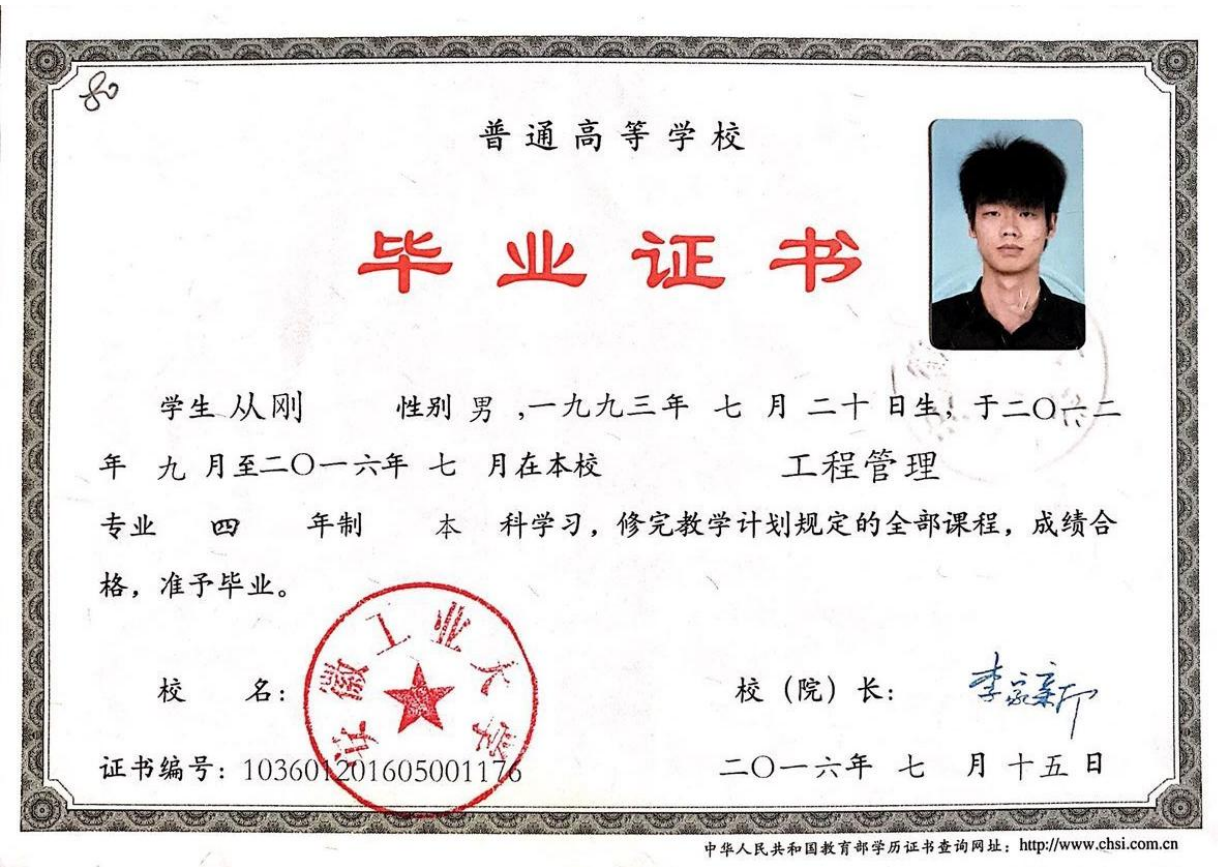 80
普通高等学校
毕业证书
学生 从刚 性别 男 ,一九九三年 七 月 二十 日生, 于二〇一二
年 九 月至二〇一六年 七 月在本校 工程管理
专业 四 年制 本 科学习, 修完教学计划规定的全部课程, 成绩合
格, 准予毕业。
安徽工业大学
校 名:
校 (院) 长:
证书编号: 103601201605001176
二〇一六年 七 月 十五 日
中华人民共和国教育部学历证书查询网址: http://www.chsi.com.cn